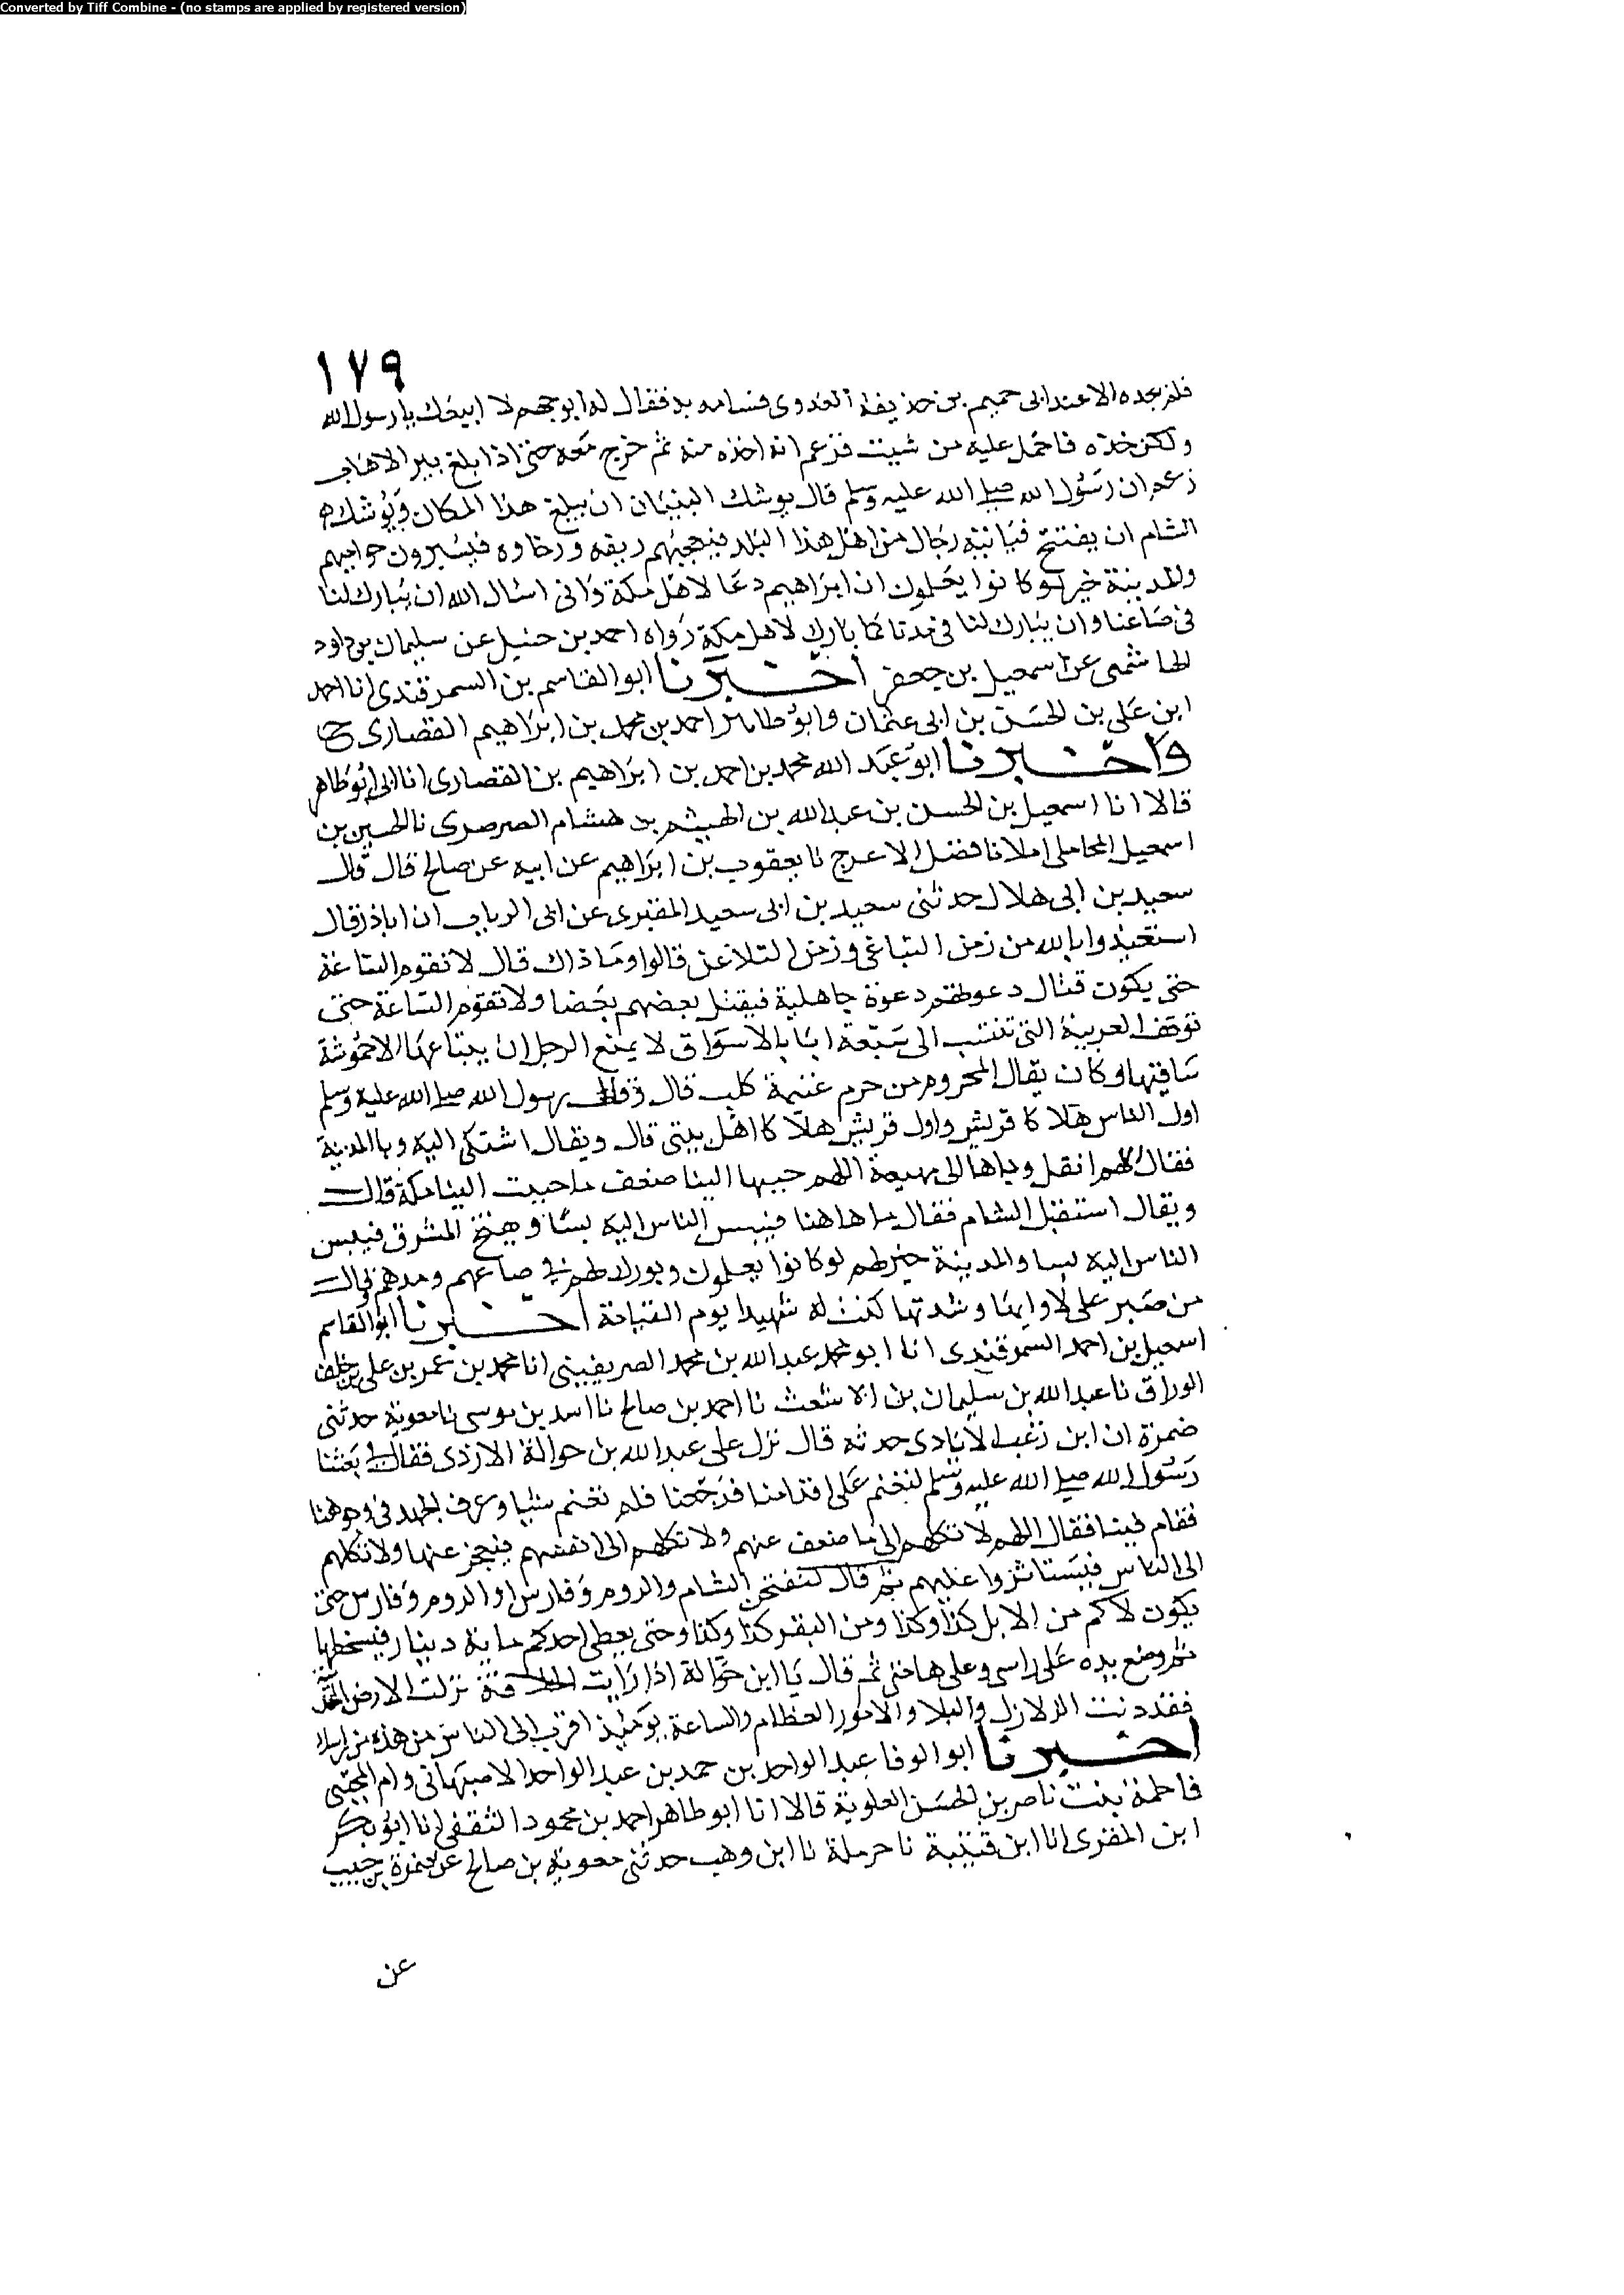 Converted by Tiff Combine - (no stamps are applied by registered version)
١٧٩
فلم يجده الا عند ابى جهيم بن حذيفة العدوى فسامه به فقال له ابو جهم لا ابيعك يا رسول الله
ولكن خذه فاحمل عليه من شيت فزعم انه اخذه منه ثم خرج معه حتى اذا بلغ بير الاهاب
زعم ان رسول الله صلى الله عليه وسلم قال يوشك البنيان ان يبلغ هذا المكان ويوشك
الشام ان يفتتح فياتيه رجال من اهل هذا البلد فيعجبهم ريفه ورخاوه فيسيرون
والمدينة خير لو كانوا يعلمون ان ابراهيم دعا لاهل مكة وانى اسال الله ان يبارك لنا
فى صاعنا وان يبارك لنا فى مدنا كما بارك لاهل مكة رواه احمد بن حنبل عن سليمان بن داود
الهاشمى عن اسمعيل بن جعفر اخبرنا ابو القاسم بن السمرقندى انا احمد
ابن على بن الحسن بن ابى عثمان وابو طاهر احمد بن محمد بن ابراهيم القصارى ح
واخبرنا ابو عبد الله محمد بن احمد بن ابراهيم بن القصارى انا ابى ابو طاهر
قالا انا اسمعيل بن الحسن بن عبد الله بن الهيثم بن هشام الصرصرى نا الحسين بن
اسمعيل المحاملى املا نا فضل الاعرج نا يعقوب بن ابراهيم عن ابيه عن صالح قال قال
سعيد بن ابى هلال حدثنى سعيد بن ابى سعيد المقبرى عن ابى الرباب ان اباذر قال
استعيذوا بالله من زمن التباغى وزمن التلاعن قالوا وما ذاك قال لا تقوم الساعة
حتى يكون قتال دعوتهم دعوة جاهلية فيقتل بعضهم بعضا ولا تقوم الساعة حتى
توقف العربية التى تنتسب الى سبعة ابا بالاسواق لا يمنع الرجل ان يبتاعها الا حموشة
ساقيها وكان يقال المحروم من حرم غنيمة كلب قال وقال رسول الله صلى الله عليه وسلم
اول الناس هلاكا قريش واول قريش هلاكا اهل بيتى قال ويقال اشتكى اليه وبا المدينة
فقال اللهم انقل وباها الى مهيعة اللهم حببها الينا ضعف ما حببت الينا مكة قال
ويقال استقبل الشام فقال ها هنا فيبس الناس اليه بسا ويفتح المشرق فيبس
الناس اليه بسا والمدينة خير لهم لو كانوا يعلمون وبورك لهم فى صاعهم ومدهم قال
من صبر على لاوايها وشدتها كنت له شهيدا يوم القيامة اخبرنا ابو القاسم
اسمعيل بن احمد السمرقندى انا ابو محمد عبد الله بن محمد الصريفينى انا محمد بن عمر بن على بن خلف
الوراق نا عبد الله بن سليمان بن الاشعث نا احمد بن صالح نا اسد بن موسى نا معوية حدثنى
ضمرة ان ابن زغب الايادى حدثه قال نزل على عبد الله بن حوالة الازدى فقال لى بعثنا
رسول الله صلى الله عليه وسلم لنغنم على اقدامنا فرجعنا فلم نغنم شيا وعرف الجهد فى وجوهنا
فقام فينا فقال اللهم لا تكلهم الى ما ضعف عنهم ولا تكلهم الى انفسهم فيعجز عنها ولا تكلهم
الى الناس فيستاثروا عليهم ثم قال لتفتحن الشام والروم وفارس او الروم وفارس حتى
يكون لاحدكم من الابل كذا وكذا ومن البقر كذا وكذا وحتى يعطى احدكم ماية دينار فيسخطها
ثم وضع يده على راسى وعلى هامتى ثم قال يا ابن حوالة اذا رايت الخلافة نزلت الارض المقدسة
فقد دنت الزلازل والبلا والامور العظام والساعة يوميذ اقرب الى الناس من هذه من راسك
اخبرنا ابو الوفا عبد الواحد بن حمد بن عبد الواحد الاصبهانى وام المجتبى
فاطمة بنت ناصر بن الحسن العلوية قالا انا ابو طاهر احمد بن محمود الثقفى انا ابو بكر
ابن المقرى انا ابن قتيبة نا حرملة نا ابن وهب حدثنى معوية بن صالح عن ضمرة بن حبيب
عن